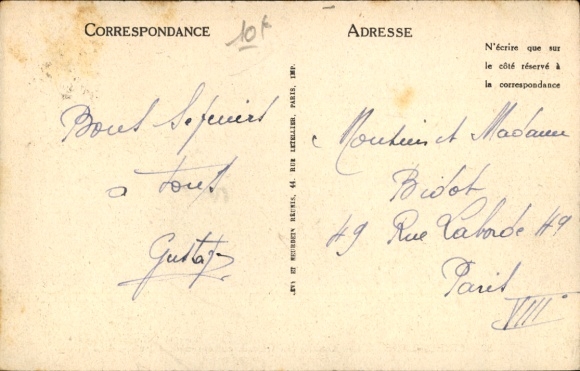 CORRESPONDANCE
10F
ADRESSE
N'écrire que sur
le côté réservé à
la correspondance
Bons
à Tous
Gustave
LÉVY ET NEURDEIN RÉUNIS, 44, RUE LETELLIER, PARIS, IMP.
Monsieur et Madame
Bidot
49 Rue Laborde 49
Paris
VIII°